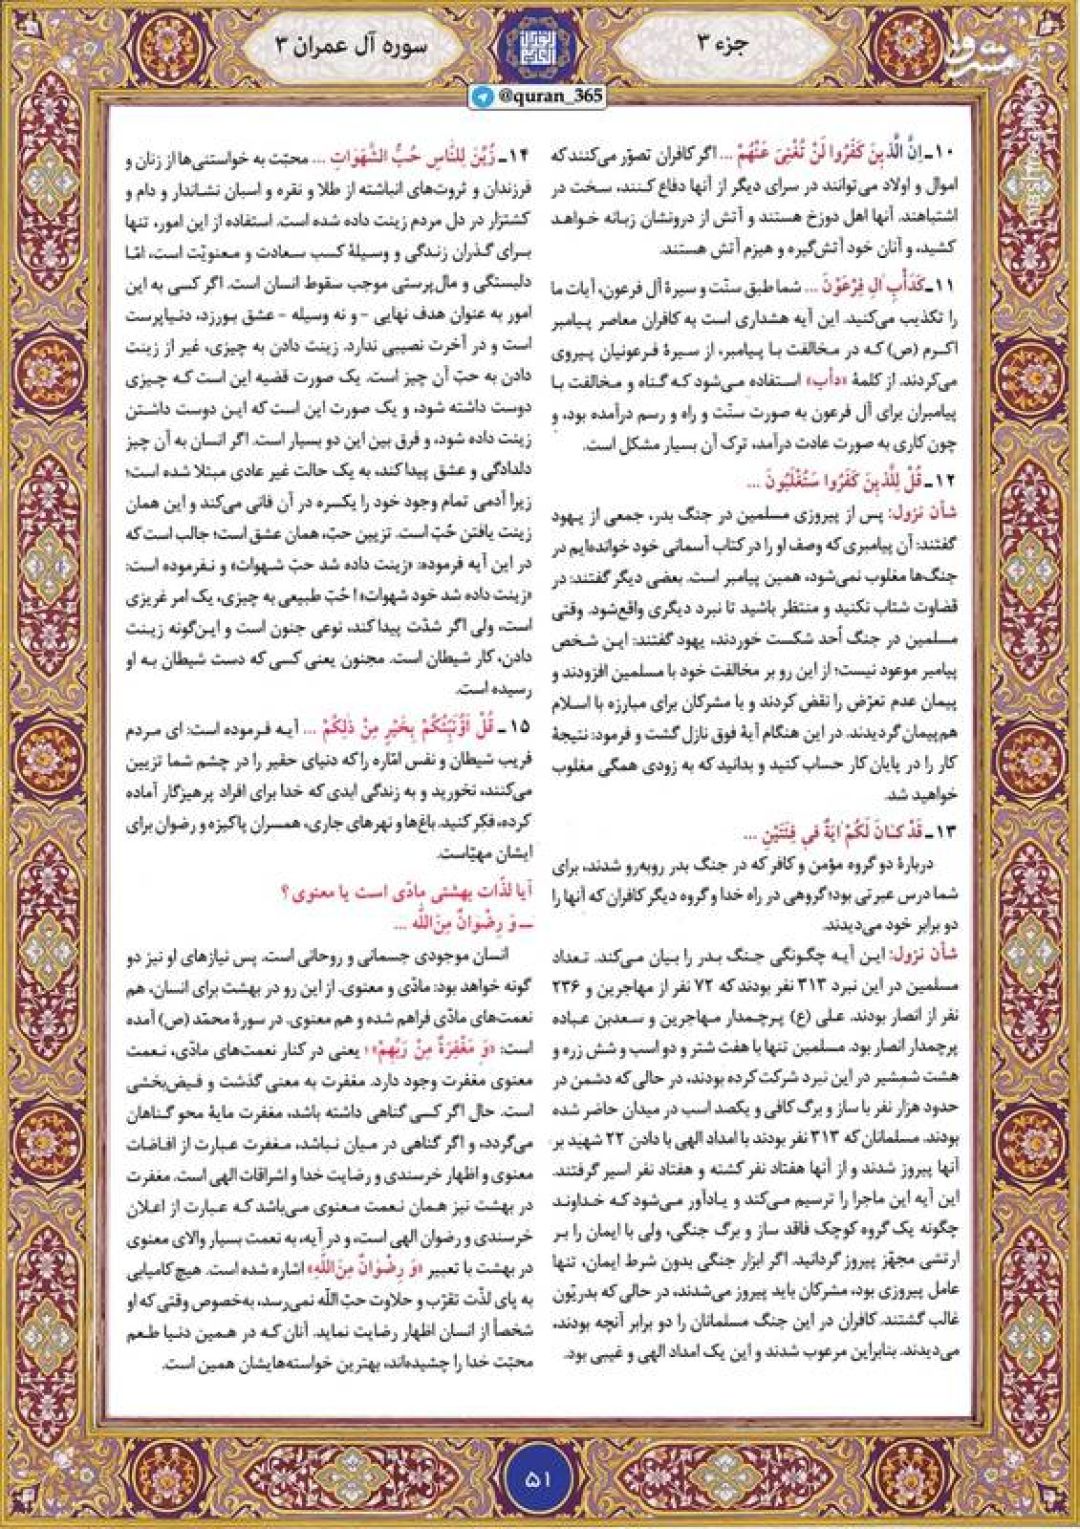 جزء ۳
سوره آل عمران ۳
@quran_365
مشرق
۱۰ـ اِنَّ الَّذِینَ کَفَرُوا لَنْ تُغْنِیَ عَنْهُمْ ... اگر کافران تصوّر می‌کنند که
اموال و اولاد می‌توانند در سرای دیگر از آنها دفاع کنند، سخت در
اشتباهند. آنها اهل دوزخ هستند و آتش از درونشان زبانه خواهد
کشید، و آنان خود آتش‌گیره و هیزم آتش هستند.
۱۱ـ کَدَأْبِ اٰلِ فِرْعَوْنَ ... شما طبق سنّت و سیرهٔ آل فرعون، آیات ما
را تکذیب می‌کنید. این آیه هشداری است به کافران معاصر پیامبر
اکرم (ص) که در مخالفت با پیامبر، از سیرهٔ فرعونیان پیروی
می‌کردند. از کلمهٔ «دأب» استفاده می‌شود که گناه و مخالفت با
پیامبران برای آل فرعون به صورت سنّت و راه و رسم درآمده بود، و
چون کاری به صورت عادت درآمد، ترک آن بسیار مشکل است.
۱۲ـ قُلْ لِلَّذِینَ کَفَرُوا سَتُغْلَبُونَ ...
شأن نزول: پس از پیروزی مسلمین در جنگ بدر، جمعی از یهود
گفتند: آن پیامبری که وصف او را در کتاب آسمانی خود خوانده‌ایم در
جنگ‌ها مغلوب نمی‌شود، همین پیامبر است. بعضی دیگر گفتند: در
قضاوت شتاب نکنید و منتظر باشید تا نبرد دیگری واقع‌شود. وقتی
مسلمین در جنگ اُحد شکست خوردند، یهود گفتند: این شخص
پیامبر موعود نیست؛ از این رو بر مخالفت خود با مسلمین افزودند و
پیمان عدم تعرّض را نقض کردند و با مشرکان برای مبارزه با اسلام
هم‌پیمان گردیدند. در این هنگام آیهٔ فوق نازل گشت و فرمود: نتیجهٔ
کار را در پایان کار حساب کنید و بدانید که به زودی همگی مغلوب
خواهید شد.
۱۳ـ قَدْ کَانَ لَکُمْ اٰیَةٌ فِی فِئَتَیْنِ ...
دربارهٔ دو گروه مؤمن و کافر که در جنگ بدر روبه‌رو شدند، برای
شما درس عبرتی بود؛ گروهی در راه خدا و گروه دیگر کافران که آنها را
دو برابر خود می‌دیدند.
شأن نزول: این آیه چگونگی جنگ بدر را بیان می‌کند. تعداد
مسلمین در این نبرد ۳۱۳ نفر بودند که ۷۲ نفر از مهاجرین و ۲۳۶
نفر از انصار بودند. علی (ع) پرچمدار مهاجرین و سعدبن عباده
پرچمدار انصار بود. مسلمین تنها با هفت شتر و دو اسب و شش زره و
هشت شمشیر در این نبرد شرکت کرده بودند، در حالی که دشمن در
حدود هزار نفر با ساز و برگ کافی و یکصد اسب در میدان حاضر شده
بودند. مسلمانان که ۳۱۳ نفر بودند با امداد الهی با دادن ۲۲ شهید بر
آنها پیروز شدند و از آنها هفتاد نفر کشته و هفتاد نفر اسیر گرفتند.
این آیه این ماجرا را ترسیم می‌کند و یادآور می‌شود که خداوند
چگونه یک گروه کوچک فاقد ساز و برگ جنگی، ولی با ایمان را بر
ارتشی مجهّز پیروز گردانید. اگر ابزار جنگی بدون شرط ایمان، تنها
عامل پیروزی بود، مشرکان باید پیروز می‌شدند، در حالی که بدریّون
غالب گشتند. کافران در این جنگ مسلمانان را دو برابر آنچه بودند،
می‌دیدند. بنابراین مرعوب شدند و این یک امداد الهی و غیبی بود.
۱۴ـ زُیِّنَ لِلنَّاسِ حُبُّ الشَّهَوَاتِ ... محبّت به خواستنی‌ها از زنان و
فرزندان و ثروت‌های انباشته از طلا و نقره و اسبان نشاندار و دام و
کشتزار در دل مردم زینت داده شده است. استفاده از این امور، تنها
برای گذران زندگی و وسیلهٔ کسب سعادت و معنویّت است، امّا
دلبستگی و مال‌پرستی موجب سقوط انسان است. اگر کسی به این
امور به عنوان هدف نهایی -و نه وسیله- عشق بورزد، دنیاپرست
است و در آخرت نصیبی ندارد. زینت دادن به چیزی، غیر از زینت
دادن به حبّ آن چیز است. یک صورت قضیه این است که چیزی
دوست داشته شود، و یک صورت این است که این دوست داشتن
زینت داده شود، و فرق بین این دو بسیار است. اگر انسان به آن چیز
دلدادگی و عشق پیدا کند، به یک حالت غیر عادی مبتلا شده است؛
زیرا آدمی تمام وجود خود را یکسره در آن فانی می‌کند و این همان
زینت یافتن حُبّ است. تزیین حبّ، همان عشق است؛ جالب است که
در این آیه فرموده: «زینت داده شد حبّ شهوات» و نفرموده است:
«زینت داده شد خود شهوات»! حُبّ طبیعی به چیزی، یک امر غریزی
است، ولی اگر شدّت پیدا کند، نوعی جنون است و این‌گونه زینت
دادن، کار شیطان است. مجنون یعنی کسی که دست شیطان به او
رسیده است.
۱۵ـ قُلْ اَؤُنَبِّئُکُمْ بِخَیْرٍ مِنْ ذٰلِکُمْ ... آیه فرموده است: ای مردم
فریب شیطان و نفس امّاره را که دنیای حقیر را در چشم شما تزیین
می‌کنند، نخورید و به زندگی ابدی که خدا برای افراد پرهیزگار آماده
کرده، فکر کنید. باغ‌ها و نهرهای جاری، همسران پاکیزه و رضوان برای
ایشان مهیّاست.
آیا لذّات بهشتی مادّی است یا معنوی؟
ـ وَ رِضْوَانٌ مِنَ اللّٰه ...
انسان موجودی جسمانی و روحانی است. پس نیازهای او نیز دو
گونه خواهد بود: مادّی و معنوی. از این رو در بهشت برای انسان، هم
نعمت‌های مادّی فراهم شده و هم معنوی. در سورهٔ محمّد (ص) آمده
است: «وَ مَغْفِرَةٌ مِنْ رَبِّهِمْ»؛ یعنی در کنار نعمت‌های مادّی، نعمت
معنوی مغفرت وجود دارد. مغفرت به معنی گذشت و فیض‌بخشی
است. حال اگر کسی گناهی داشته باشد، مغفرت مایهٔ محو گناهان
می‌گردد، و اگر گناهی در میان نباشد، مغفرت عبارت از افاضات
معنوی و اظهار خرسندی و رضایت خدا و اشراقات الهی است. مغفرت
در بهشت نیز همان نعمت معنوی می‌باشد که عبارت از اعلان
خرسندی و رضوان الهی است، و در آیه، به نعمت بسیار والای معنوی
در بهشت با تعبیر «وَ رِضْوَانٌ مِنَ اللّٰهِ» اشاره شده است. هیچ کامیابی
به پای لذّت تقرّب و حلاوت حبّ اللّه نمی‌رسد، به‌خصوص وقتی که او
شخصاً از انسان اظهار رضایت نماید. آنان که در همین دنیا طعم
محبّت خدا را چشیده‌اند، بهترین خواسته‌هایشان همین است.
۵۱